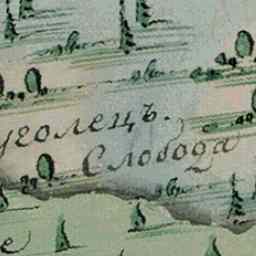 уголецъ.
Слобода